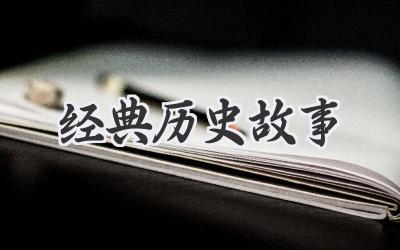 经典历史故事